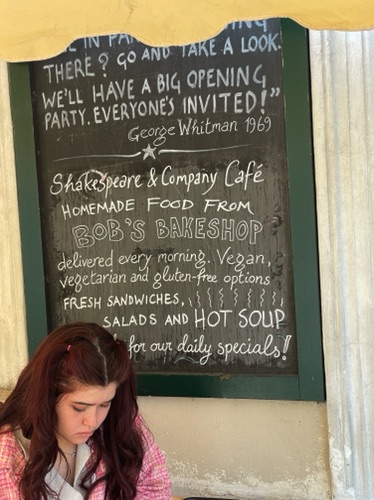 IN PA
THERE? GO AND TAKE A LOOK.
WE'LL HAVE A BIG OPENING
PARTY. EVERYONE'S INVITED!"
George Whitman 1969
Shakespeare & Company Café
HOMEMADE FOOD FROM
BOB'S BAKESHOP
delivered every morning. Vegan,
vegetarian and gluten-free options
FRESH SANDWICHES,
SALADS AND HOT SOUP
for our daily specials!